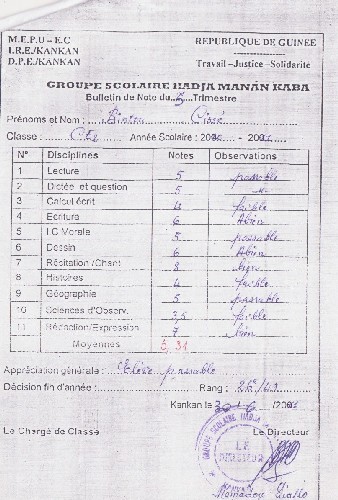 M.E.P.U – E.C REPUBLIQUE DE GUINEE
I.R.E./KANKAN
D.P.E./KANKAN Travail –Justice –Solidarité
GROUPE SCOLAIRE HADJA MANÁN KABA
Bulletin de Note du 3 Trimestre
Prénoms et Nom : Bintou Cissé
Classe : Année Scolaire : 200 - 200
N° Disciplines Notes Observations
1 Lecture 5 passable
2 Dictée et question 5 -"-
3 Calcul écrit 4 faible
4 Ecriture 6 Abien
5 I.C Morale 5 passable
6 Dessin 6 Abien
7 Récitation /Chant 8 bien
8 Histoires 4 faible
9 Géographie 5 passable
10 Sciences d'Observ. 3,5 faible
11 Rédaction/Expression 7 bien
Moyennes 5,31
Appréciation générale : Elève passable
Décision fin d'année : Rang : 26/
Kankan le /200
Le Chargé de Classe Le Directeur
GROUPE SCOLAIRE HADJA
LE
DIRECTEUR
Mamadou Diallo